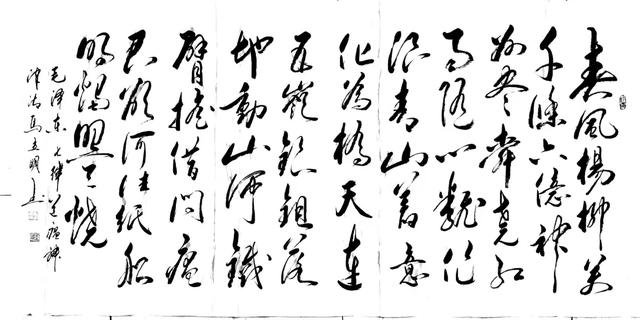 春風楊柳萬
千條六億神
州盡舜堯紅
雨随心翻作
浪青山着意
化為橋天連
五嶺銀鋤落
地動山河鐵
臂摇借問瘟
君欲何往紙船
明燭照天燒
毛澤東七律送瘟神
馬立明書